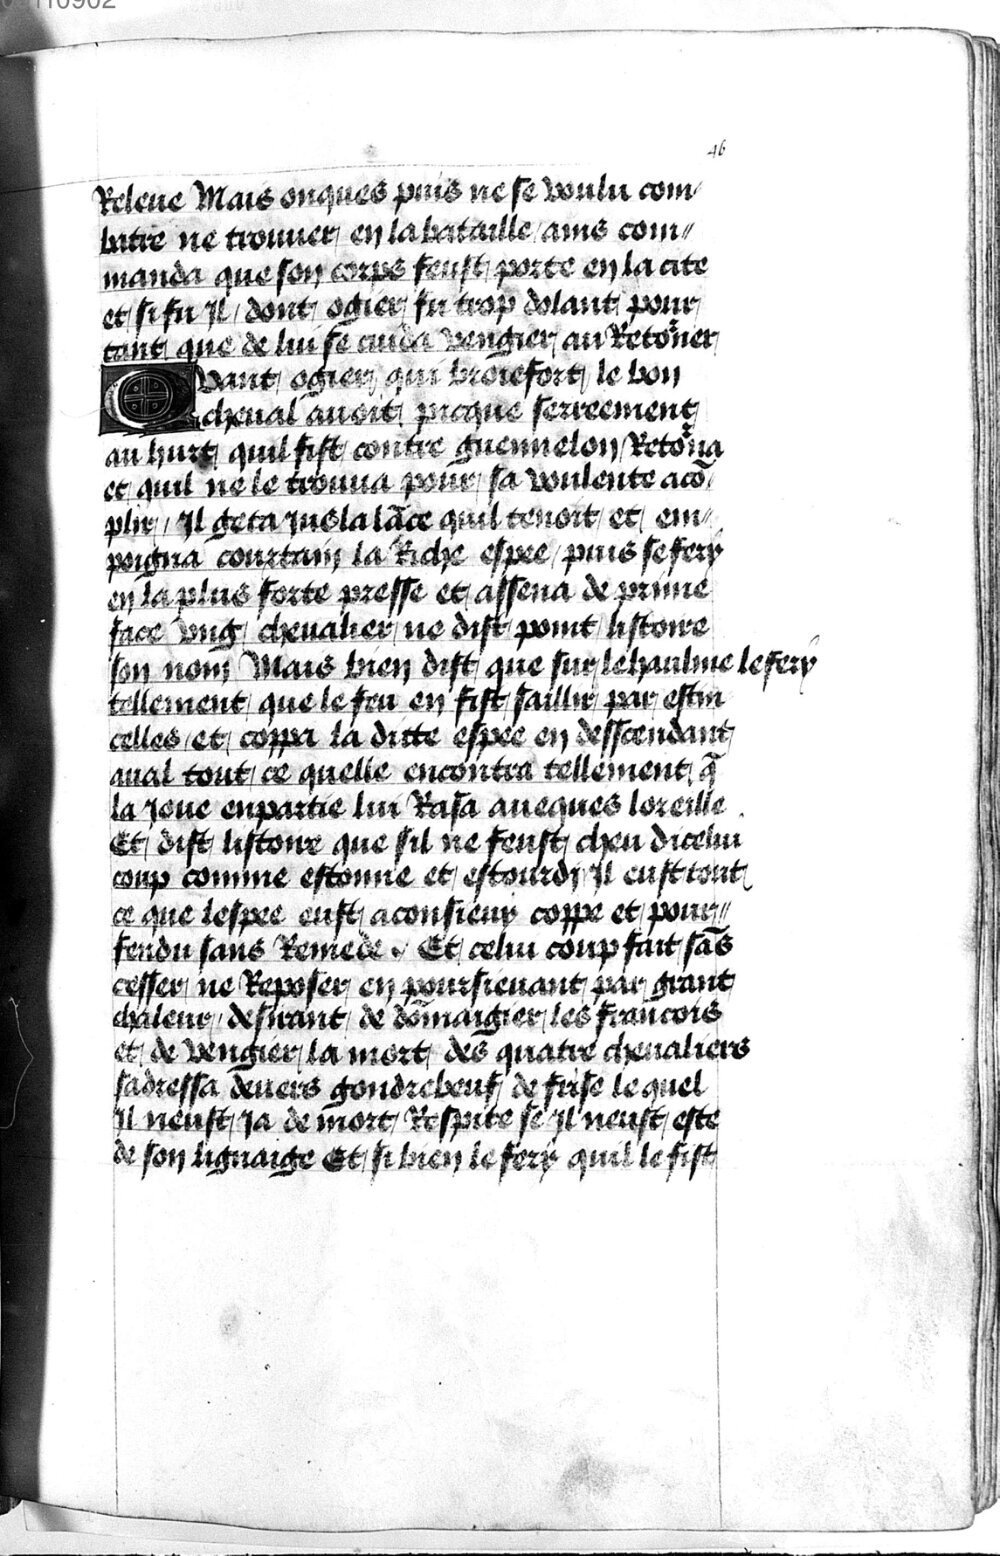 110902
46
Releue Mais onques puis ne se voulu com/
batre ne trouuer en la bataille / ains com//
manda que son corps feust porte en la cite
et si fu Il / dont ogier fu trop dolant pour
tant que de lui se cuida vengier au Reto'ner
Quant ogier qui broiefort le bon
cheual auoit picque serreement
au hurt quil fist contre guennelon Reto'na
et quil ne le trouua pour sa voulente acō/
plir / Il geta Jus la lāce quil tenoit et em//
poigna courtain la Riche espee / puis se fery
en la plus forte presse et assena de prime
face vng cheualier ne dist point listoire
son nom Mais bien dist que sur le haulme le fery
tellement que le feu en fist saillir par estin
celles / et coppa la ditte espee en desscendant
aual tout ce quelle encontra tellement q̄
la Joue en partie lui Rasa aueques loreille
Et dist listoire que sil ne feust cheu dicelui
coup comme estonne et estourdi Il eust tout
ce que lespee eust aconsieuy coppe et pour//
fendu sans Remede . Et celui coup fait sās
cesser ne Reposer en poursieuant par grant
chaleur / desirant de dōmaigier les francois
et de vengier la mort des quatre cheualiers
sadressa deuers gondrebeuf de frise le quel
Il neust Ja de mort Respite se Il neust este
de son lignaige Et si bien le fery quil le fist